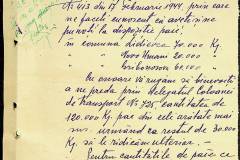 No 413 din 17 Februarie 1944, prin care
ne faceti cunoscut ca aveti si ne
puneti la dispozitie paie,
in comuna Didierea 70.000 Kg.
" " 20.000 "
" " 60.100 "
De onoare va rugam sa binevoiti
a ne preda prin Delegatul Coloanei
de transport No 725, cantitatea de
120.000 Kg. paie din cele aratate mai
sus, urmand ca restul de 30.000
Kg. sa le ridicam ulterior.
Pentru cantitatile de paie ce